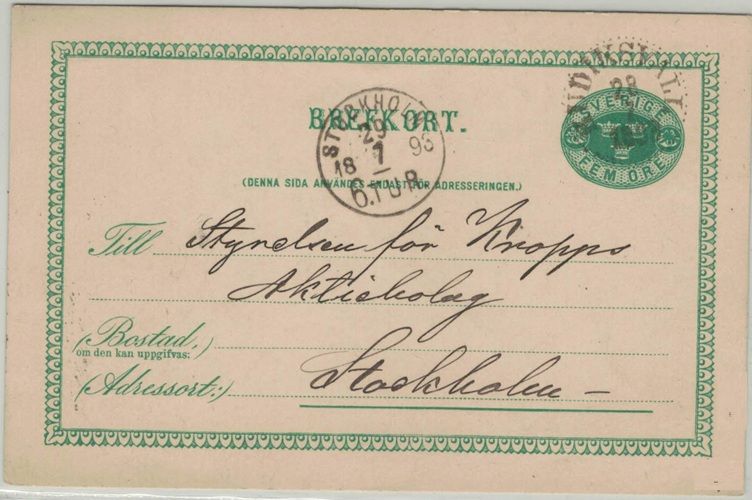 HUDIKSVALL
28
1
SVERIGE
FEM ÖRE
STOCKHOLM
29
1
18 93
6. TUR
BREFKORT.
(DENNA SIDA ANVÄNDES ENDAST FÖR ADRESSERINGEN.)
Till Styrelsen för Kropps
Aktiebolag
(Bostad,)
om den kan uppgifvas:
(Adressort:) Stockholm –